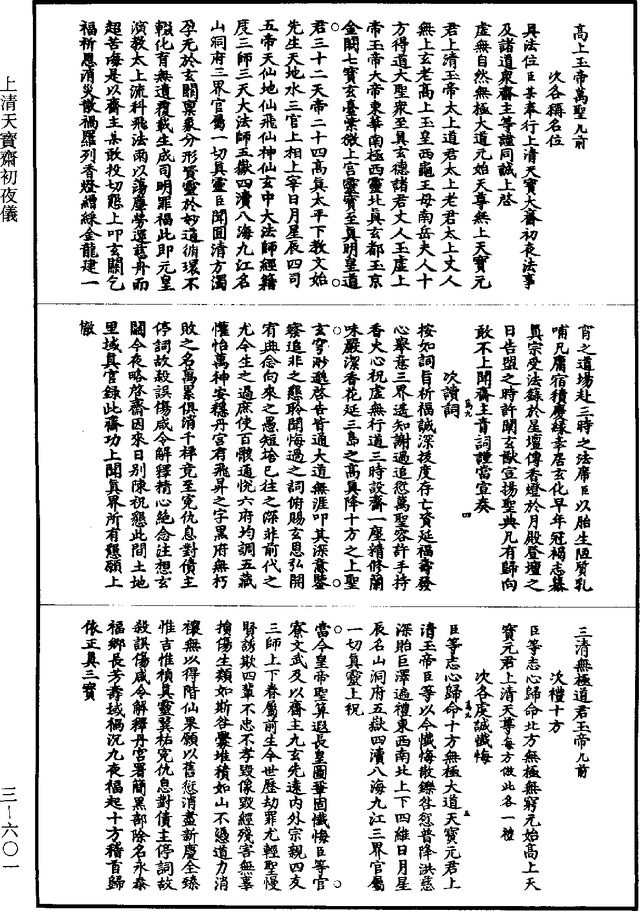 高上玉帝萬聖几前
次各稱名位
具法位臣某奉行上清天寶大齋初夜法事
及諸道衆齋主等謹同誠上啓
虛無自然無極大道元始天尊無上天寶元
君上清玉帝太上道君太上老君太上丈人
無上玄老高上玉皇西龜王母南岳夫人十
方得道大聖衆至真玄德諸君丈人玉虛上
帝玉帝大帝東華南極西靈北真玄都玉京
金闕七寶玄臺紫微上宮靈寶至真明皇道
君三十二天帝二十四高真太平下教文始
先生天地水三官上相上宰日月星辰四司
五帝天仙地仙飛仙神仙玄中大法師經籍
度三師三天大法師五嶽四瀆八海九江名
山洞府三界官屬一切真靈臣聞圓清方濁
孕元於玄關稟象分形資靈於妙道循環不
輟化育無遺覆載生成司明罪福此即元皇
演教太上流科飛法雨以蕩塵勞運慈舟而
超苦海是以齋主某敢投切懇上叩玄關乞
福祈恩消災散禍羅列香燈繒綵金龍建一
宵之道場赴三時之法席臣以胎生陋質乳
哺凡膚宿積慶緣幸居玄化早年冠褐志慕
真宗受法籙於星壇傳香燈於月殿登壇之
日告盟之時許開玄猷宣揚聖典凡有歸向
敢不上聞齋主青詞謹當宣奏
次讀詞
按如詞旨祈福誠深拔度存亡資延福壽發
心舉意三界遙知謝過追愆萬聖容許手持
香火心祝虛無行道三時設齋一座精修蘭
味嚴潔香花延三島之高真降十方之上聖
玄穹眇邈啓告皆通大道無涯叩其深意鑒
察追非之懇聆聞悔過之詞俯賜玄恩弘開
宥典念向來之愚短捨已往之深非前代之
尤今生之過庶使百骸通悅六府均調五藏
懽怡萬神安穩丹宮有飛昇之字黑府無朽
敗之名萬累俱消千祥竞至冤仇息對債主
停詞故殺誤傷咸令解釋精心絶念注想玄
關今夜略啓齋因來日別陳祝懇此間土地
里域真官録此齋功上聞真界所有懇願上
徹
三清無極道君玉帝几前
次禮十方
臣等志心歸命北方無極無窮元始高上天
寶元君上清天尊每方做此各一禮
次各虔誠懺悔
臣等志心歸命十方無極大道天寶元君上
清玉帝臣等以今懺悔散鑠咎愆普降洪慈
深賒巨澤遍禮東西南北上下四維日月星
辰名山洞府五嶽四瀆八海九江三界官屬
一切真靈上祝
當今皇帝聖算遐長皇圖鞏固懺悔臣等官
寮文武及以齋主九玄先遠内外宗親四友
三師上下眷屬前生今世歷劫罪尤輕聖慢
賢誘欺四輩不忠不孝毀像毀經殘害無辜
損傷生類如斯咎釁堆積如山不憑道力消
禳無以得階仙果願以舊愆消盡新慶全臻
惟吉惟禎真靈翼祐冤仇息對債主停詞故
殺誤傷咸令解釋丹宮署簡黑部除名永泰
福鄉長芳壽域禍沉九夜福起十方稽首歸
依正真三寶
上清天寶齋初夜儀
三—六〇一